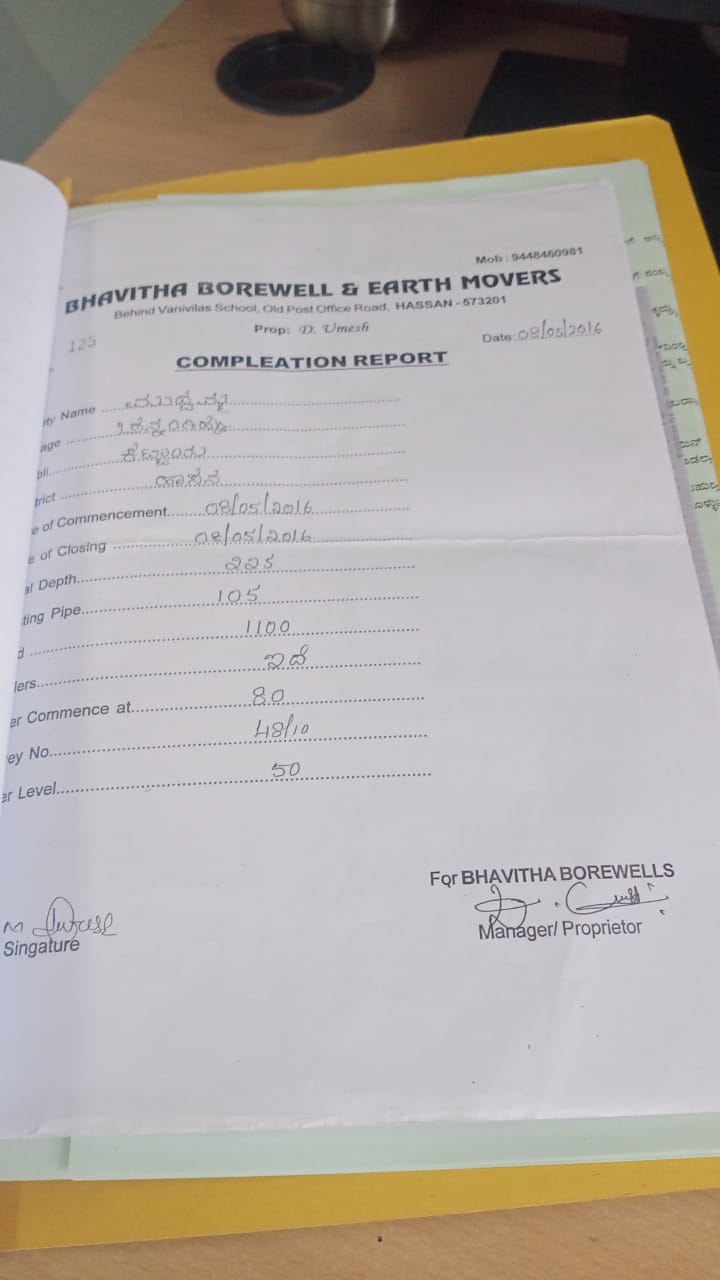 Mob : 9448460981
BHAVITHA BOREWELL & EARTH MOVERS
Behind Vanivilas School, Old Post Office Road, HASSAN - 573201
Prop: D. Umesh
125
Date: 08/05/2016
COMPLEATION REPORT
rty Name
age
bli
trict ಹಾಸನ
e of Commencement 08/05/2016
e of Closing 08/05/2016
al Depth 225
ting Pipe 105
d 1100
lers ಇದೆ
er Commence at 80
ey No 48/10
er Level 50
For BHAVITHA BOREWELLS
Singature
Manager/ Proprietor